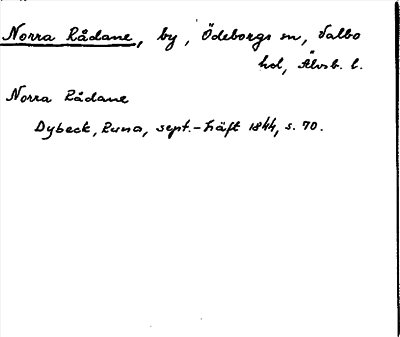 Norra Rådane, by, Ödeborgs sn, Valbo
hd, Älvsb. l.
Norra Rådane
Dybeck, Runa, sept.-häft 1844, s. 70.